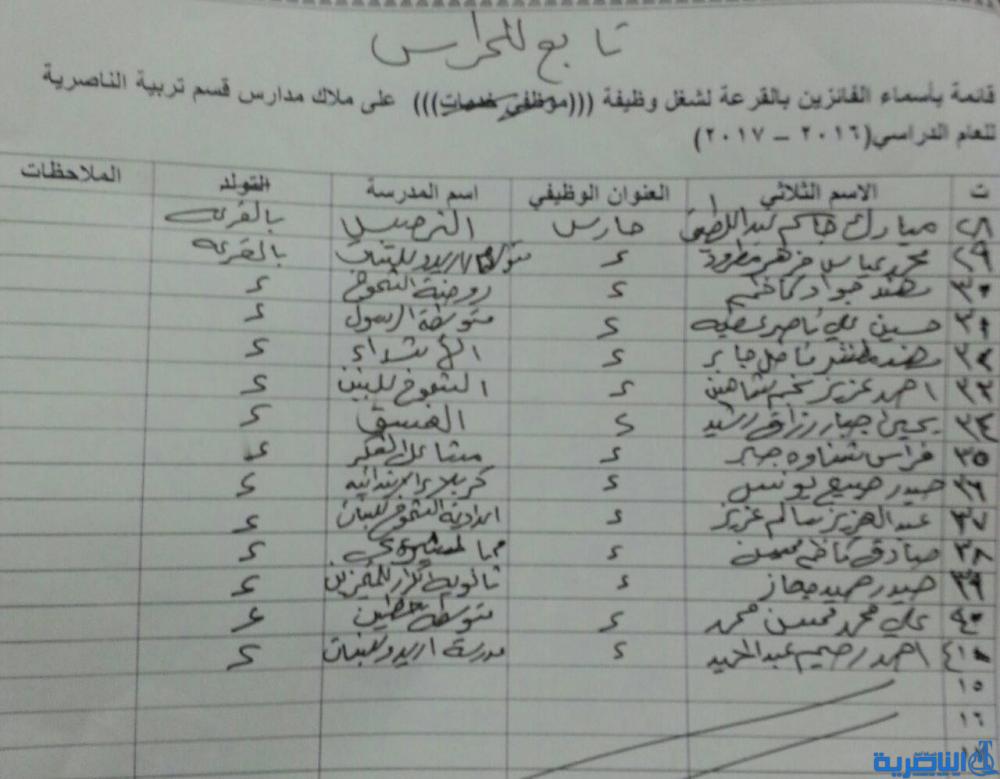 تابع للحراس
قائمة بأسماء الفائزين بالقرعة لشغل وظيفة (((موظفي خدمات))) على ملاك مدارس قسم تربية الناصرية
للعام الدراسي(٢٠١٦ – ٢٠١٧)
ت الاسم الثلاثي العنوان الوظيفي اسم المدرسة التولد الملاحظات
٢٨ مبارك جاسم عبد اللطيف حارس النرجس بالقرعه
٢٩ محمد عباس مزهر مطرود ء متوسطة اريدو للبنات بالقرعه
٣٠ مهند جواد كاظم ء روضة الشموخ ء
٣١ حسين علي ناصر عطيه ء متوسطة الرسول ء
٣٢ مهند جابر ء ء
٣٣ احمد عزيز نجم شاهين ء الشموخ للبنين ء
٣٤ يحيى جبار رزاق رشيد ء الغسق ء
٣٥ فراس شناوه جبر ء مشاعل الفكر ء
٣٦ حيدر صبيح يونس ء كربلاء الابتدائيه ء
٣٧ عبد العزيز سالم عزيز ء اعدادية الشموخ للبنات ء
٣٨ صادق كاظم محسن ء ء
٣٩ حيدر حميد مجاز ء ثانوية للمتميزين ء
٤٠ علي محمد محسن محمد ء متوسطة حطين ء
٤١ احمد رحيم عبد الحميد ء مدرسة اريدو للبنات ء
١٥
١٦
١٧
الناصرية